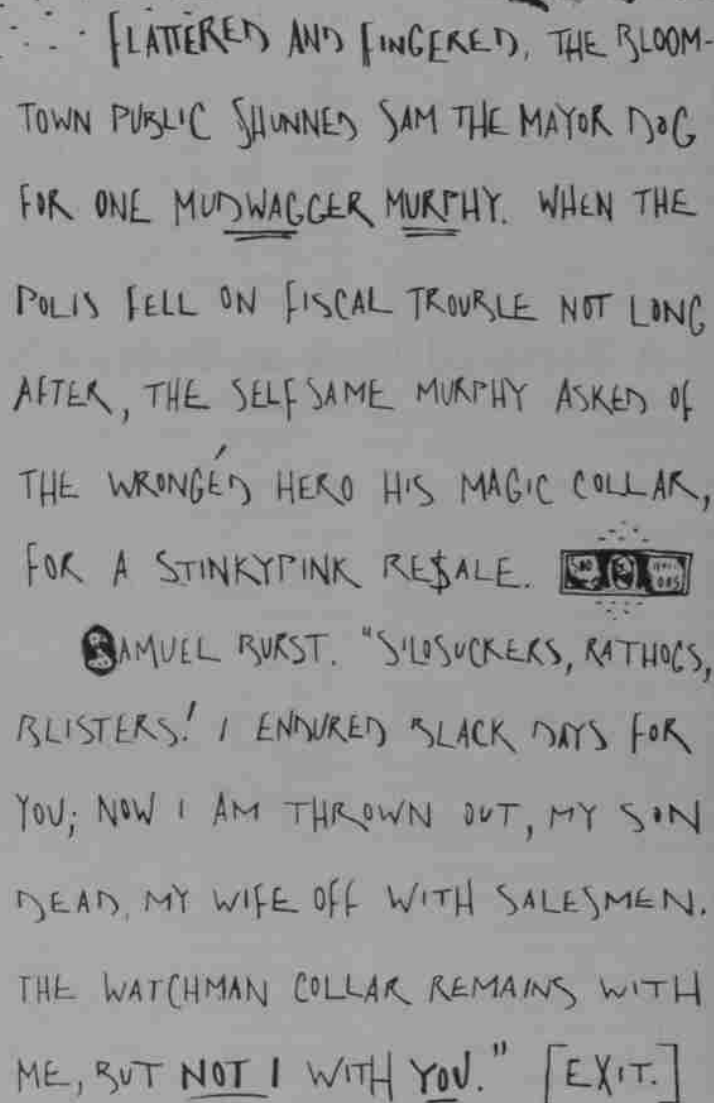 FLATTERED AND FINGERED, THE BLOOM-
TOWN PUBLIC SHUNNED SAM THE MAYOR DOG
FOR ONE MUDWAGGER MURPHY. WHEN THE
POLIS FELL ON FISCAL TROUBLE NOT LONG
AFTER, THE SELFSAME MURPHY ASKED OF
THE WRONGÉD HERO HIS MAGIC COLLAR,
FOR A STINKYPINK RE$ALE.
SAMUEL BURST. "SILOSUCKERS, RATHOGS,
BLISTERS! I ENDURED BLACK DAYS FOR
YOU; NOW I AM THROWN OUT, MY SON
DEAD, MY WIFE OFF WITH SALESMEN.
THE WATCHMAN COLLAR REMAINS WITH
ME, BUT NOT I WITH YOU." [EXIT.]